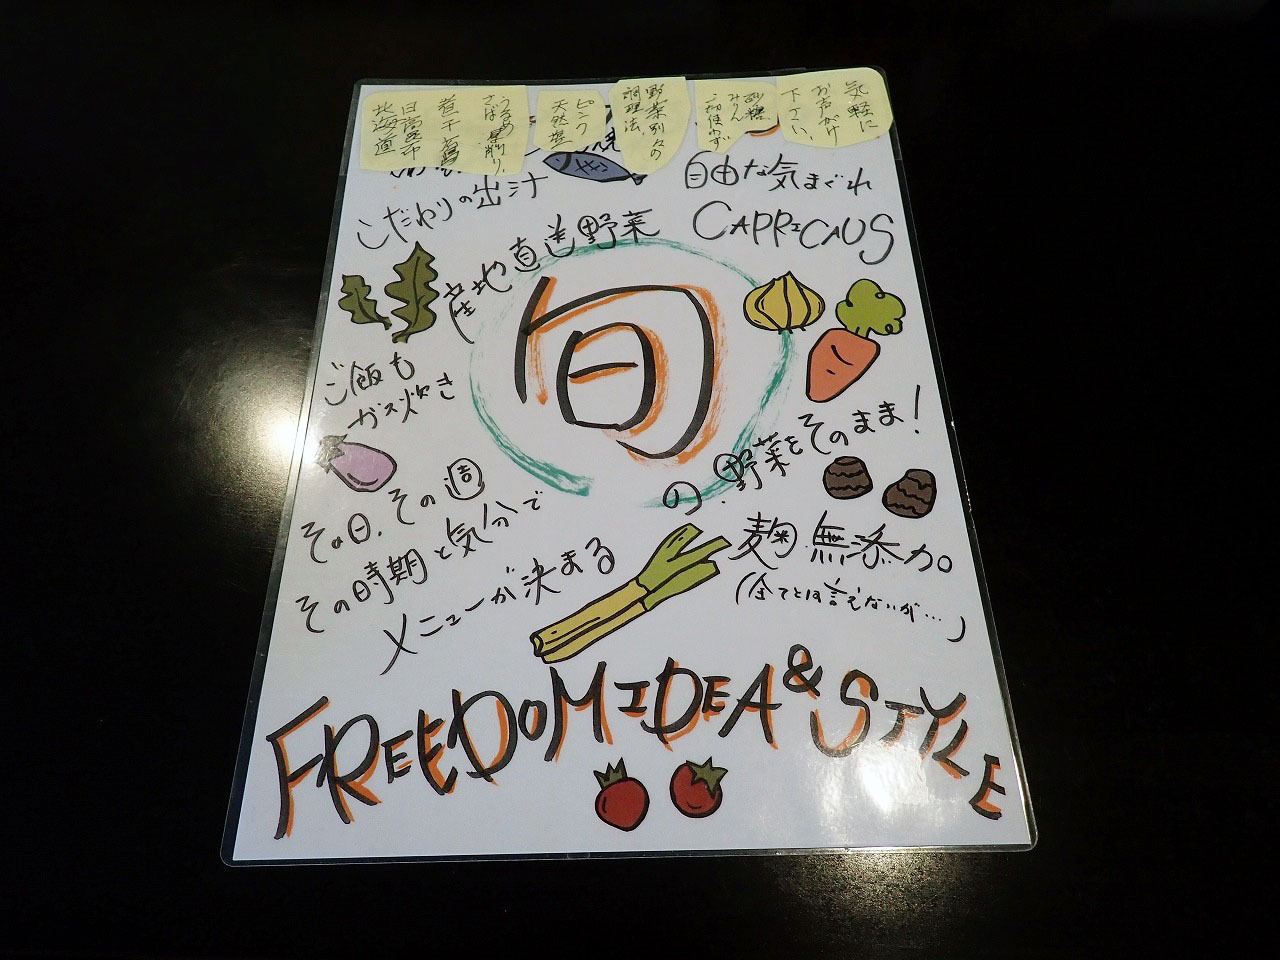 気軽に
お声がけ
下さい
砂糖
みりん
一切使わず
野菜別々の
調理法
ピンク
天然塩
うるめ
さば 厚削り
若干
日高昆布
北海道
こだわりの出汁
自由な気まぐれ
CAPRICAUS
産地直送野菜
旬
の野菜をそのまま!
ご飯も
ガス炊き
その日、その週
その時期と気分で
メニューが決まる
麹 無添加
(全てとは言えないが…)
FREEDOM IDEA & STYLE